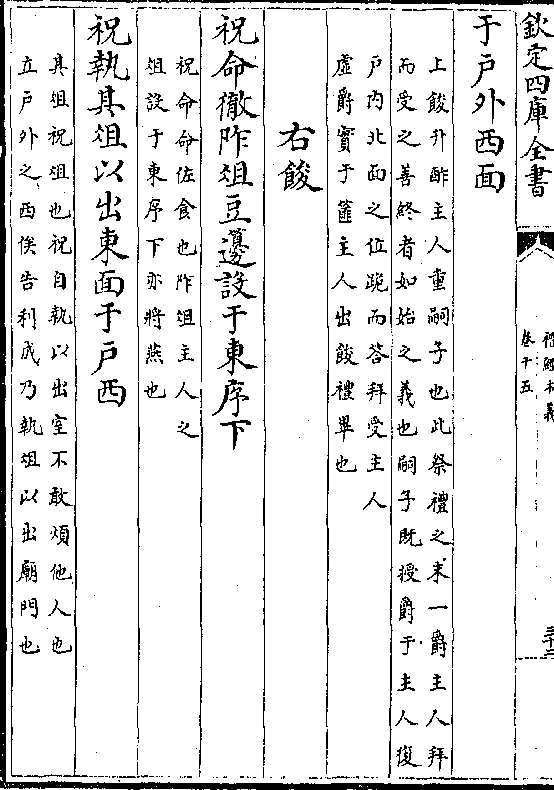 欽定四庫全書
禮經本義
卷十五
三十二
于戶外西面
上餕升酢主人重嗣子也此祭禮之末一爵主人拜
而受之善終者如始之義也嗣子既授爵于主人復
戶內北面之位跪而答拜受主人
虛爵實于篚主人出餕禮畢也
右餕
祝命徹阼俎豆籩設于東序下
祝命命佐食也阼俎主人之
俎設于東序下亦將燕也
祝執其俎以出東面于戶西
其俎祝俎也祝自執以出室不敢煩他人也
立戶外之西俟告利成乃執俎以出廟門也